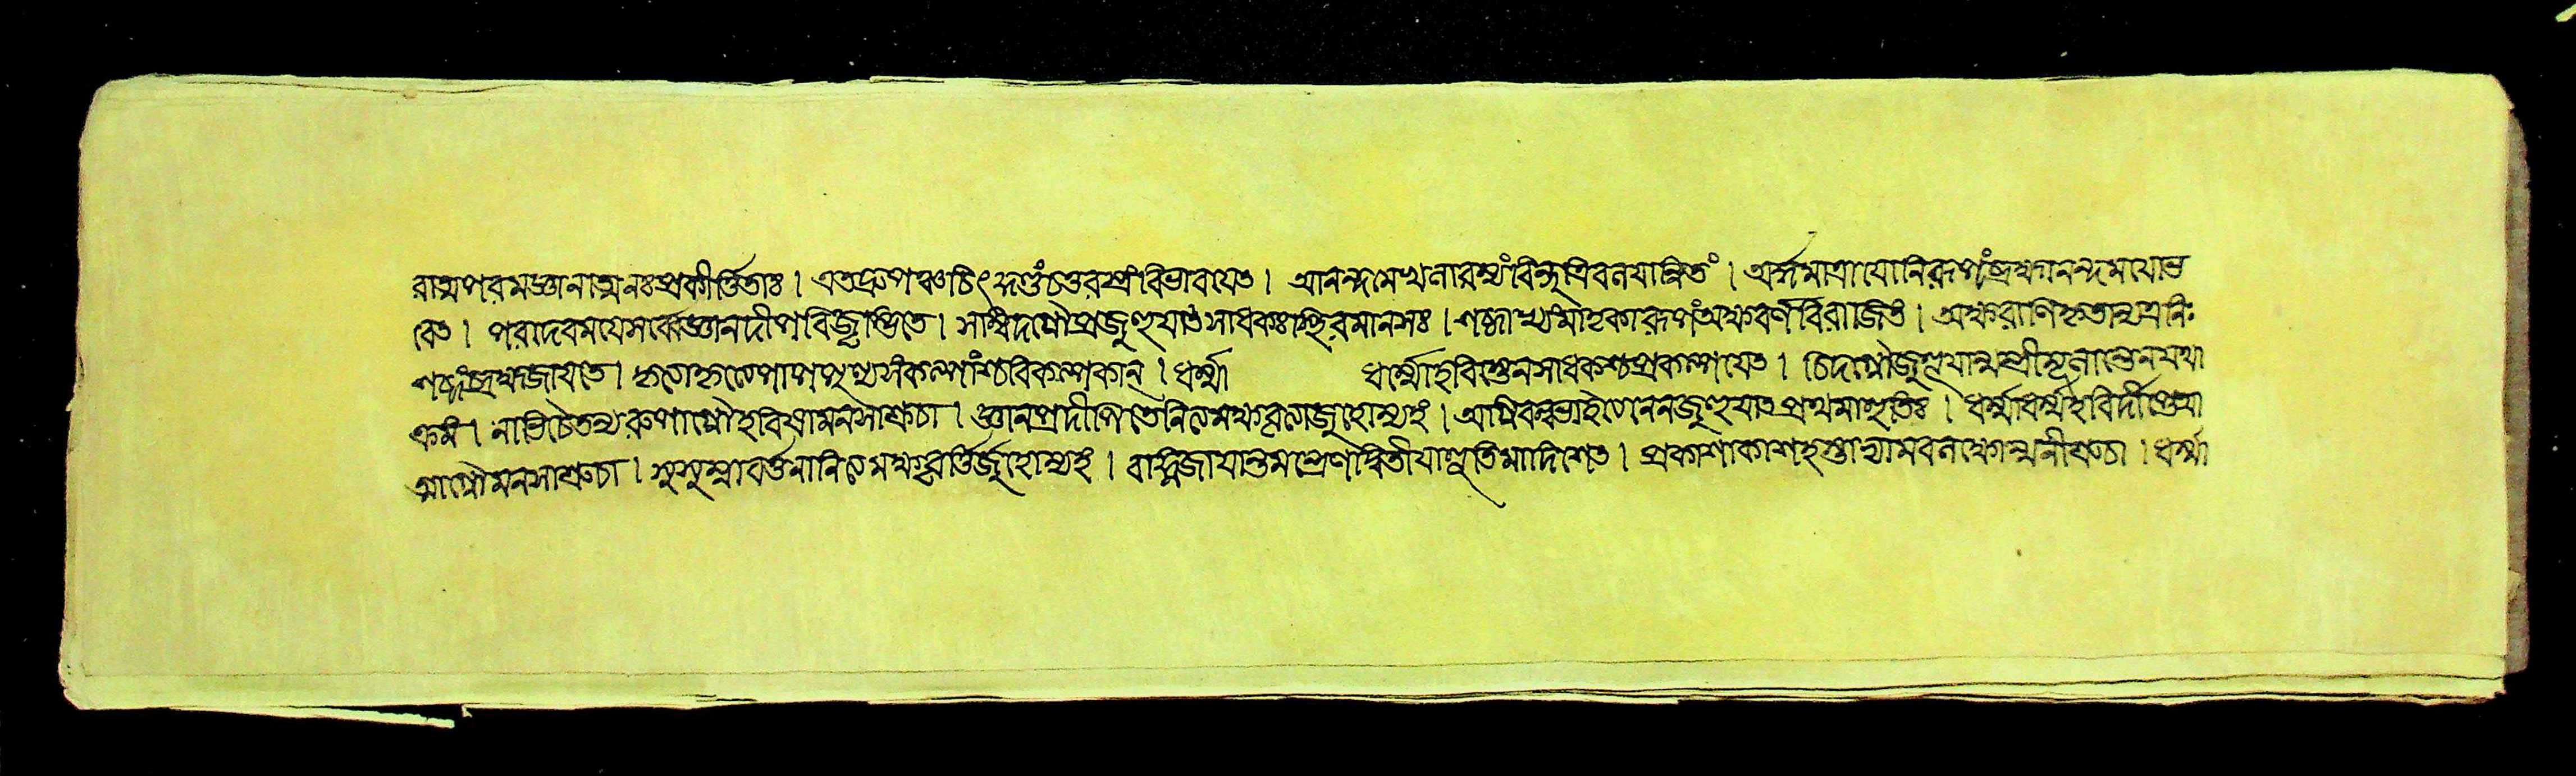 রাত্মপরমজ্ঞানাত্মনঃপ্রকীর্ত্তিতাঃ। এতদ্রুপঞ্চচিৎকুণ্ডংচতুরস্রংবিভাবযেৎ। আনন্দমেখলারম্যংবিন্দুত্রিবলযান্বিতং। অর্দ্ধমাত্রাযোনিরূপংব্রহ্মানন্দমযোভ
বেৎ। পরাদেবমযেসর্ব্বেজ্ঞানদীপবিজৃম্ভিতে। সম্বিদগ্নৌপ্রজুহুযাৎসাধকঃস্থিরমানসঃ। শব্দাখ্যমাতৃকারূপংঅক্ষবর্ণবিরাজিতং। অক্ষরাণিহুতান্যত্রনিঃ
শব্দংব্রহ্মজাযতে। কৃত্যাকৃত্যেপাপপুণ্যসংকল্পাংশ্চবিকল্পকান্। ধর্ম্মা ধর্ম্মোহবিস্তেনসাধকশ্চপ্রকল্পযেৎ। চিদগ্নৌজুহুযান্মন্ত্রীমূলান্তেনযথা
ক্রমং। নাভিচৈতন্যরূপাগ্নৌহবিষামনসাশ্রুচা। জ্ঞানপ্রদীপিতেনিত্যমক্ষবৃত্তাজুহোম্যহং। অগ্নিবল্লভাইত্যেননজুহুযাৎপ্রথমাহুতিঃ। ধর্ম্মাধর্ম্মহবির্দীপ্তেআ
ত্মাগ্নৌমনসাশ্রুচা। সুসুম্নাবর্ত্তনানিত্যমক্ষবৃর্ত্তির্জুহোম্যহং। বাহ্নিজাযান্তমন্ত্রেণদ্বিতীযাহুতিমাদিশেৎ। প্রকাশাকাশহস্তাভ্যামবলম্ব্যোন্মনীশ্রুচা। ধর্ম্মা